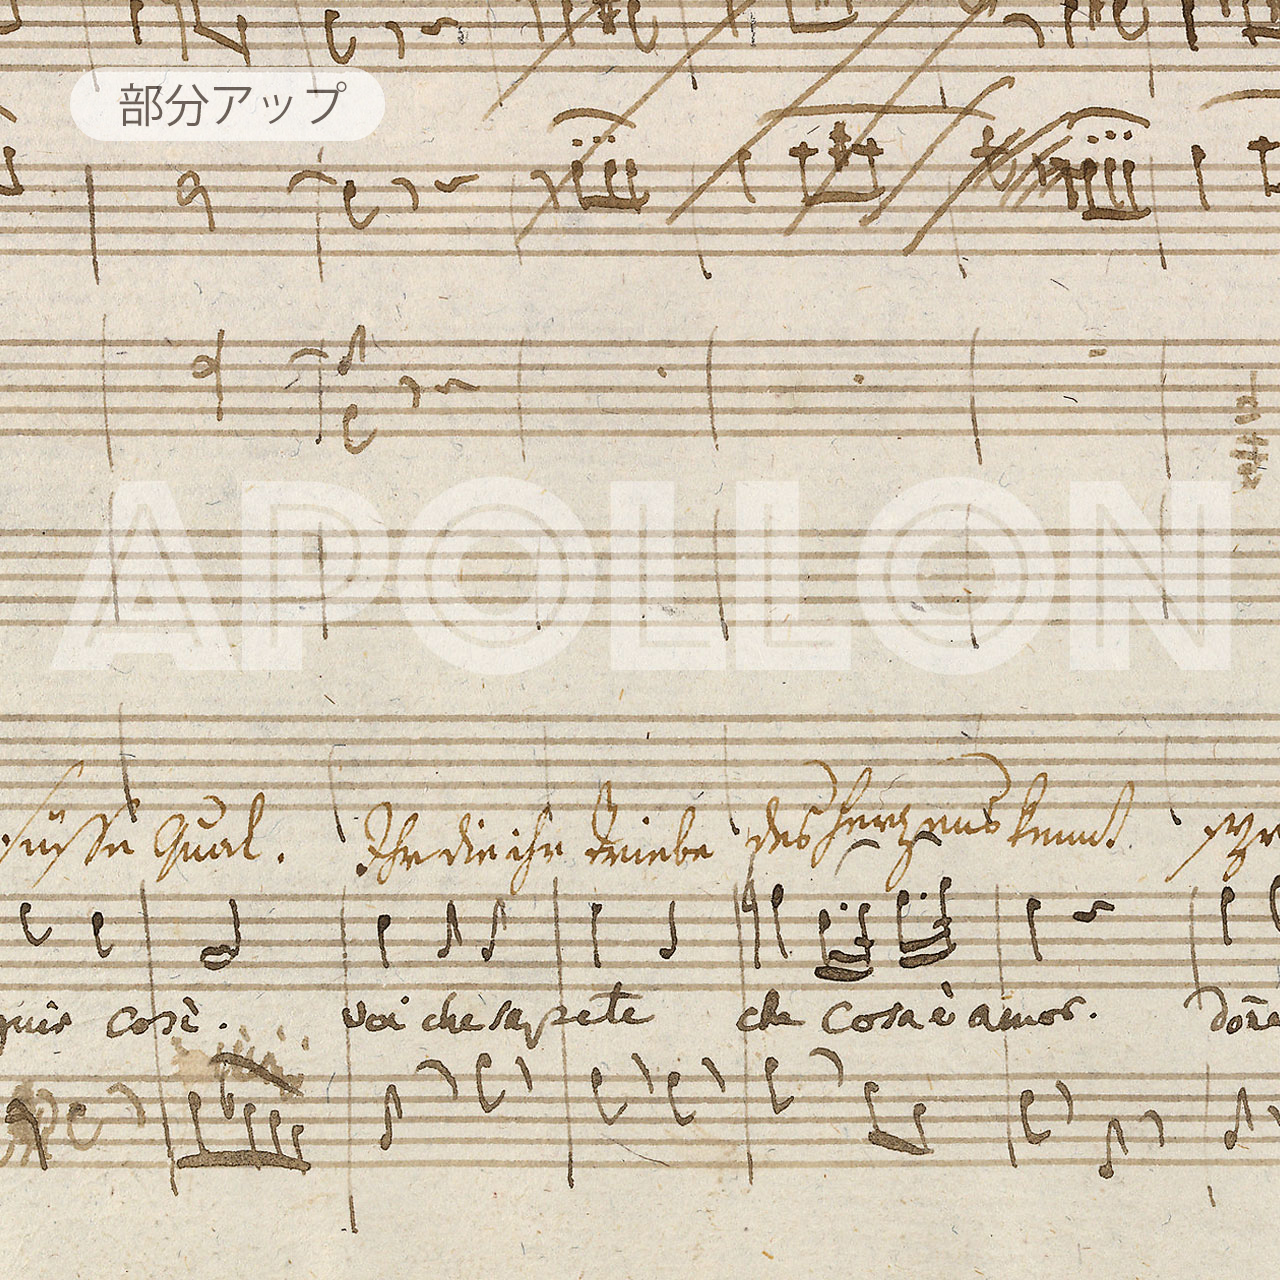 部分アップ
APOLLON
süsse Qual. Ihr die ihr Triebe des Herzens kennt
così. voi che sapete che cosa è amor. done